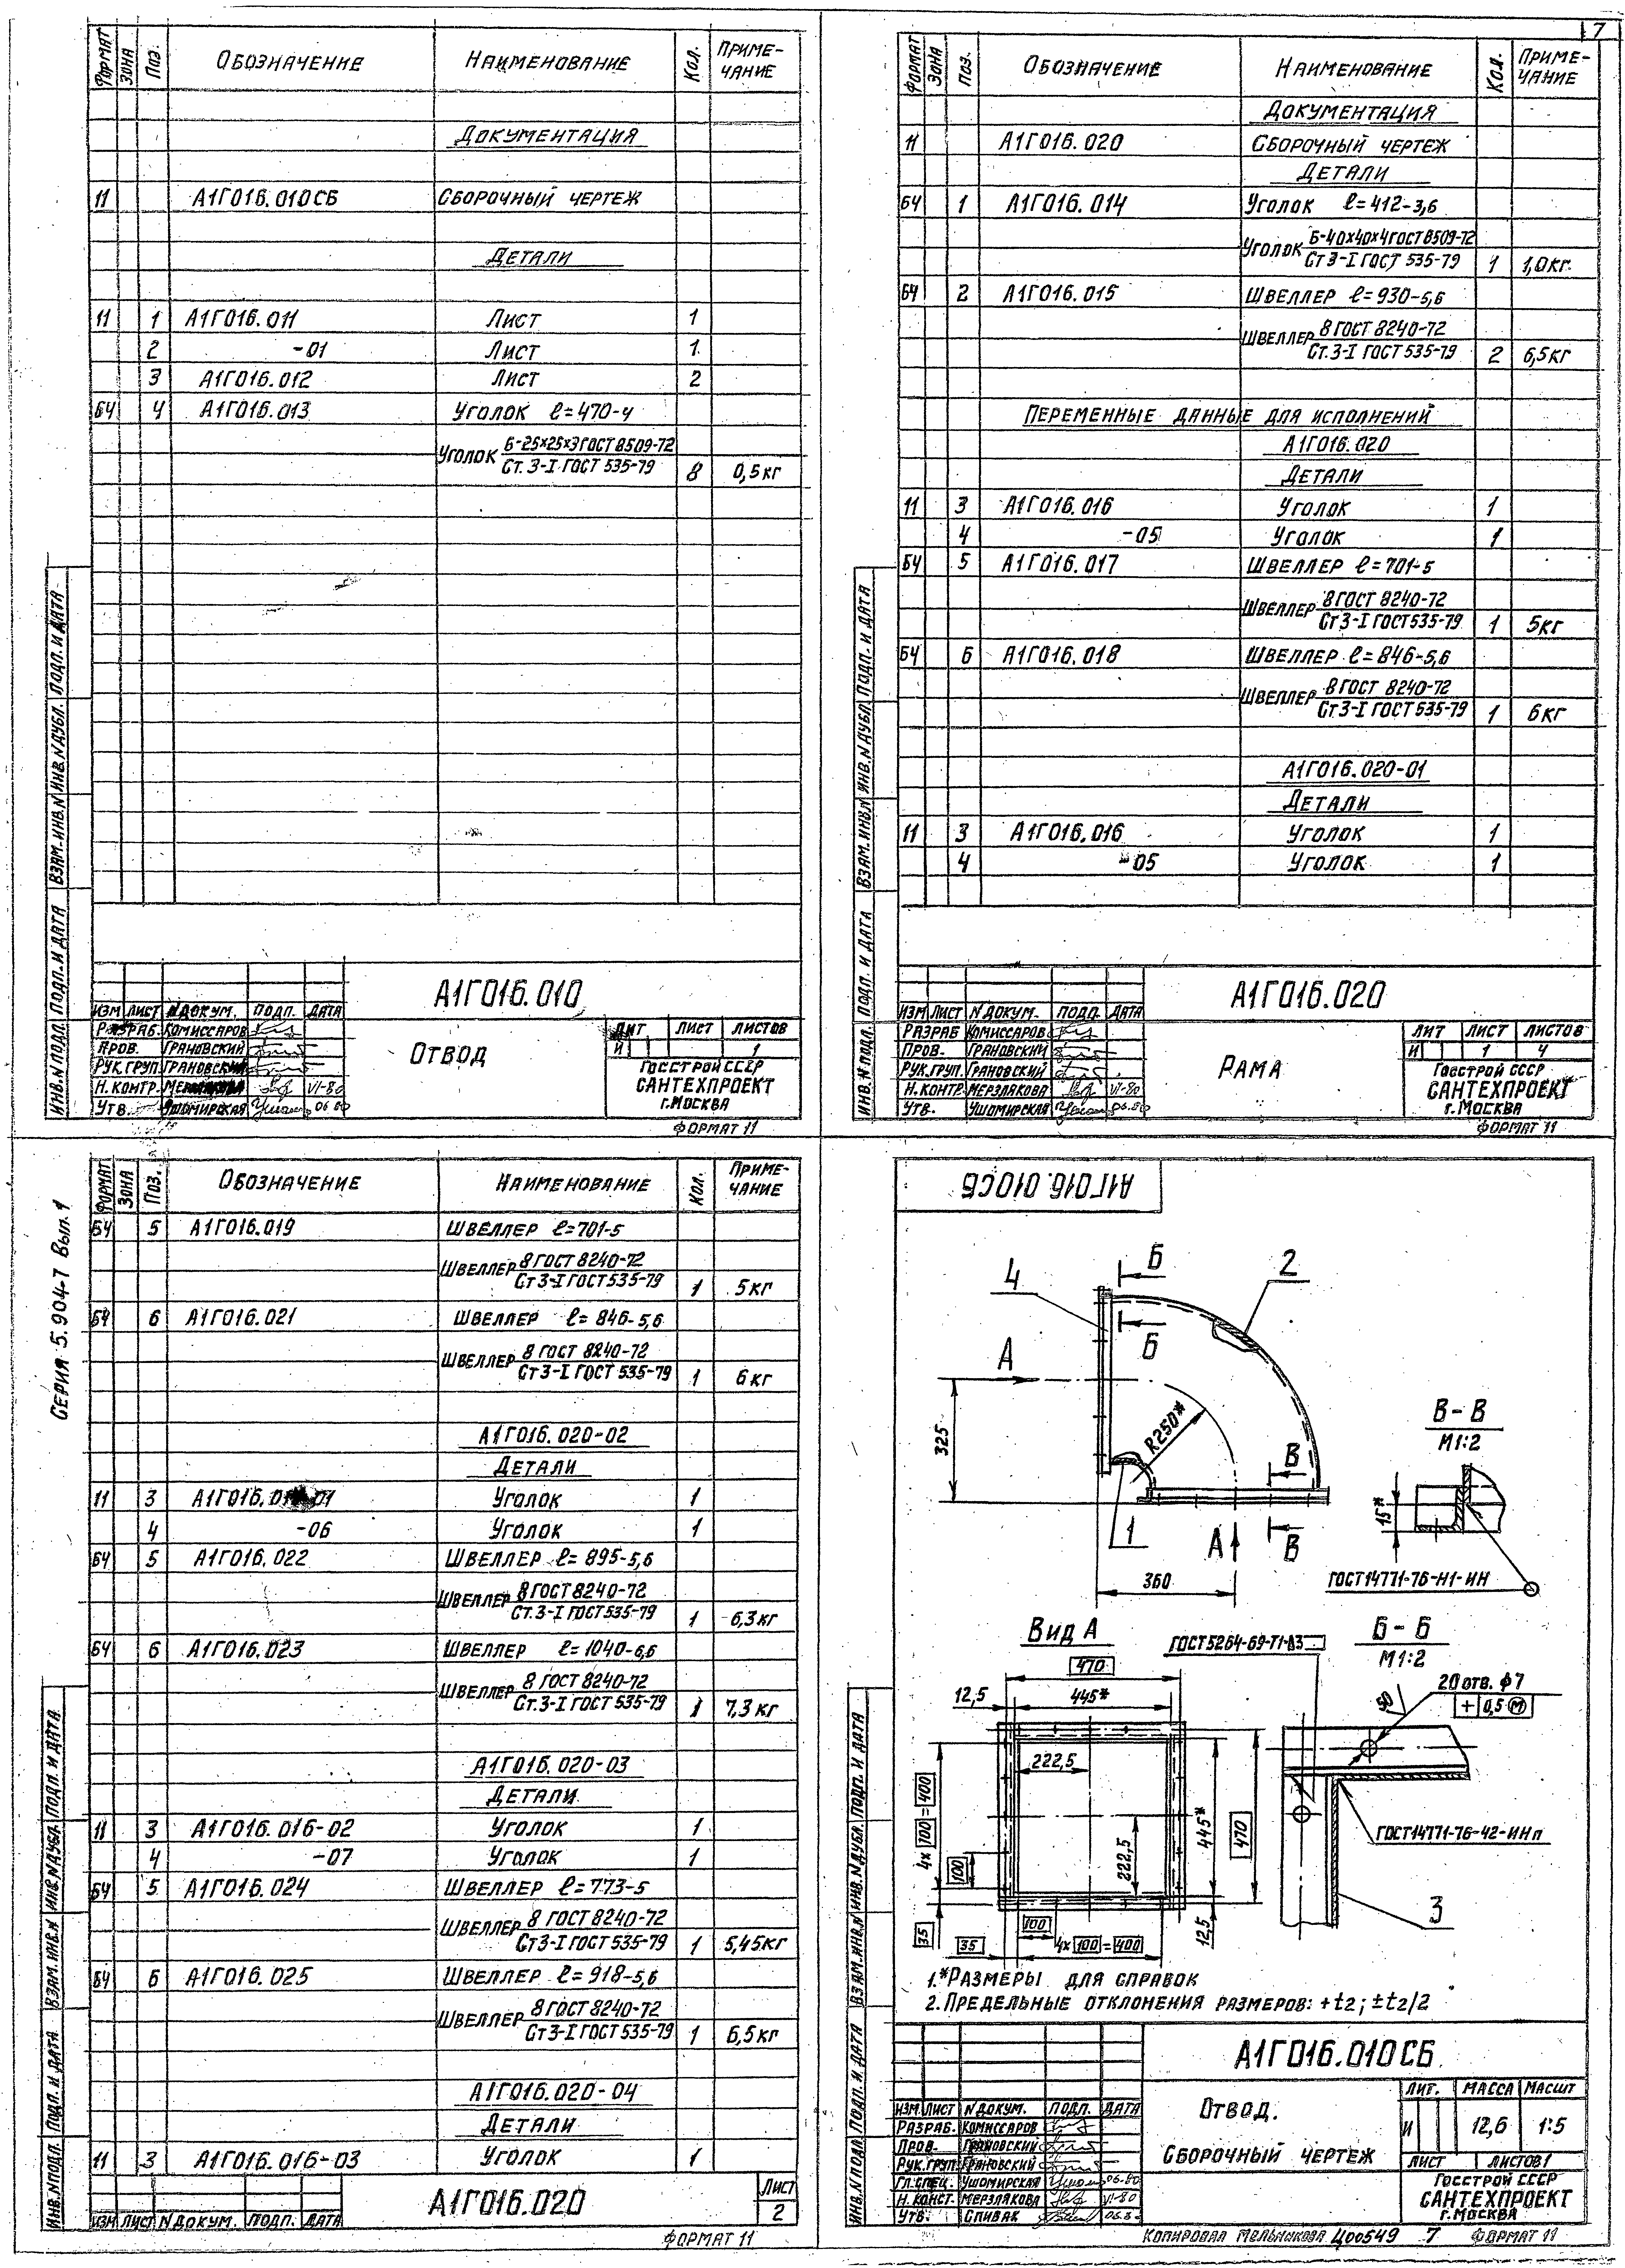 7
ФОРМАТ ЗОНА ПОЗ. ОБОЗНАЧЕНИЕ НАИМЕНОВАНИЕ КОЛ. ПРИМЕ-
ЧАНИЕ
ДОКУМЕНТАЦИЯ
11 А1Г016.010СБ СБОРОЧНЫЙ ЧЕРТЕЖ
ДЕТАЛИ
11 1 А1Г016.011 ЛИСТ 1
2 -01 ЛИСТ 1
3 А1Г016.012 ЛИСТ 2
БЧ 4 А1Г016.013 УГОЛОК ℓ=470-4
УГОЛОК Б-25×25×3 ГОСТ 8509-72
Ст. 3-I ГОСТ 535-79 8 0,5 кг
А1Г016.010
ИЗМ ЛИСТ N ДОКУМ. ПОДП. ДАТА
РАЗРАБ. КОМИССАРОВ
ПРОВ. ГРАНОВСКИЙ
РУК.ГРУП. ГРАНОВСКИЙ
Н.КОНТР. МЕРЗЛЯКОВА VI-80
УТВ. УШОМИРСКАЯ 06.80
ОТВОД
ЛИТ ЛИСТ ЛИСТОВ
И 1
ГОССТРОЙ СССР
САНТЕХПРОЕКТ
г.МОСКВА
ФОРМАТ 11
ИНВ.N ПОДЛ. ПОДП. И ДАТА ВЗАМ. ИНВ.N ИНВ.N ДУБЛ. ПОДП. И ДАТА
ФОРМАТ ЗОНА ПОЗ. ОБОЗНАЧЕНИЕ НАИМЕНОВАНИЕ КОЛ. ПРИМЕ-
ЧАНИЕ
ДОКУМЕНТАЦИЯ
11 А1Г016.020 СБОРОЧНЫЙ ЧЕРТЕЖ
ДЕТАЛИ
БЧ 1 А1Г016.014 УГОЛОК ℓ=412-3,6
УГОЛОК Б-40×40×4 ГОСТ 8509-72
Ст 3-I ГОСТ 535-79 1 1,0 кг.
БЧ 2 А1Г016.015 ШВЕЛЛЕР ℓ=930-5,6
ШВЕЛЛЕР 8 ГОСТ 8240-72
Ст.3-I ГОСТ 535-79 2 6,5 кг
ПЕРЕМЕННЫЕ ДАННЫЕ ДЛЯ ИСПОЛНЕНИЙ
А1Г016.020
ДЕТАЛИ
11 3 А1Г016.016 УГОЛОК 1
4 -05 УГОЛОК 1
БЧ 5 А1Г016.017 ШВЕЛЛЕР ℓ=701-5
ШВЕЛЛЕР 8 ГОСТ 8240-72
Ст 3-I ГОСТ 535-79 1 5 кг
БЧ 6 А1Г016.018 ШВЕЛЛЕР ℓ=846-5,6
ШВЕЛЛЕР 8 ГОСТ 8240-72
Ст 3-I ГОСТ 535-79 1 6 кг
А1Г016.020-01
ДЕТАЛИ
11 3 А1Г016.016 УГОЛОК 1
4 -05 УГОЛОК 1
А1Г016.020
ИЗМ ЛИСТ N ДОКУМ. ПОДП. ДАТА
РАЗРАБ КОМИССАРОВ
ПРОВ. ГРАНОВСКИЙ
РУК.ГРУП. ГРАНОВСКИЙ
Н.КОНТР. МЕРЗЛЯКОВА VI-80
УТВ. УШОМИРСКАЯ 06.80
РАМА
ЛИТ ЛИСТ ЛИСТОВ
И 1 4
ГОССТРОЙ СССР
САНТЕХПРОЕКТ
г.МОСКВА
ФОРМАТ 11
ИНВ.N ПОДЛ. ПОДП. И ДАТА ВЗАМ. ИНВ.N ИНВ.N ДУБЛ. ПОДП. И ДАТА
СЕРИЯ 5.904-7 Вып.1
ФОРМАТ ЗОНА ПОЗ. ОБОЗНАЧЕНИЕ НАИМЕНОВАНИЕ КОЛ. ПРИМЕ-
ЧАНИЕ
БЧ 5 А1Г016.019 ШВЕЛЛЕР ℓ=701-5
ШВЕЛЛЕР 8 ГОСТ 8240-72
Ст 3-I ГОСТ 535-79 1 5 кг
БЧ 6 А1Г016.021 ШВЕЛЛЕР ℓ=846-5,6
ШВЕЛЛЕР 8 ГОСТ 8240-72
Ст 3-I ГОСТ 535-79 1 6 кг
А1Г016.020-02
ДЕТАЛИ
11 3 УГОЛОК 1
4 -06 УГОЛОК 1
БЧ 5 А1Г016.022 ШВЕЛЛЕР ℓ=895-5,6
ШВЕЛЛЕР 8 ГОСТ 8240-72
Ст.3-I ГОСТ 535-79 1 6,3 кг
БЧ 6 А1Г016.023 ШВЕЛЛЕР ℓ=1040-6,6
ШВЕЛЛЕР 8 ГОСТ 8240-72
Ст.3-I ГОСТ 535-79 1 7,3 кг
А1Г016.020-03
ДЕТАЛИ
11 3 А1Г016.016-02 УГОЛОК 1
4 -07 УГОЛОК 1
БЧ 5 А1Г016.024 ШВЕЛЛЕР ℓ=773-5
ШВЕЛЛЕР 8 ГОСТ 8240-72
Ст 3-I ГОСТ 535-79 1 5,45 кг
БЧ 6 А1Г016.025 ШВЕЛЛЕР ℓ=918-5,6
ШВЕЛЛЕР 8 ГОСТ 8240-72
Ст 3-I ГОСТ 535-79 1 6,5 кг
А1Г016.020-04
ДЕТАЛИ
11 3 А1Г016.016-03 УГОЛОК 1
ИЗМ ЛИСТ N ДОКУМ. ПОДП. ДАТА
А1Г016.020
ЛИСТ
2
ФОРМАТ 11
ИНВ.N ПОДЛ. ПОДП. И ДАТА ВЗАМ. ИНВ.N ИНВ.N ДУБЛ. ПОДП. И ДАТА
А1Г016.010СБ
4 Б 2
Б
А
325
R250*
В
1 А В
360
В-В
М1:2
15*
ГОСТ14771-76-Н1-ИН
Вид А
470
12,5 445*
222,5
4×100=400
100
35
445*
470
222,5
12,5
100
35 4×100=400
ГОСТ5264-69-Т1-Δ3
Б-Б
М1:2
50
20 отв. ф7
+ 0,5 М
ГОСТ14771-76-42-ИНп
3
1.*РАЗМЕРЫ ДЛЯ СПРАВОК
2. ПРЕДЕЛЬНЫЕ ОТКЛОНЕНИЯ РАЗМЕРОВ: +t2; ±t2/2
А1Г016.010СБ
ИЗМ. ЛИСТ N ДОКУМ. ПОДП. ДАТА
РАЗРАБ. КОМИССАРОВ
ПРОВ. ГРАНОВСКИЙ
РУК.ГРУП. ГРАНОВСКИЙ
ГЛ.СПЕЦ. УШОМИРСКАЯ 06.80
Н.КОНСТ. МЕРЗЛЯКОВА VI-80
УТВ. СПИВАК
ОТВОД.
СБОРОЧНЫЙ ЧЕРТЕЖ
ЛИТ. МАССА МАСШТ
И 12,6 1:5
ЛИСТ ЛИСТОВ 1
ГОССТРОЙ СССР
САНТЕХПРОЕКТ
г.МОСКВА
ИНВ.N ПОДЛ. ПОДП. И ДАТА ВЗАМ. ИНВ.N ИНВ.N ДУБЛ. ПОДП. И ДАТА
КОПИРОВАЛ МЕЛЬНИКОВА Ц00549 7 ФОРМАТ 11